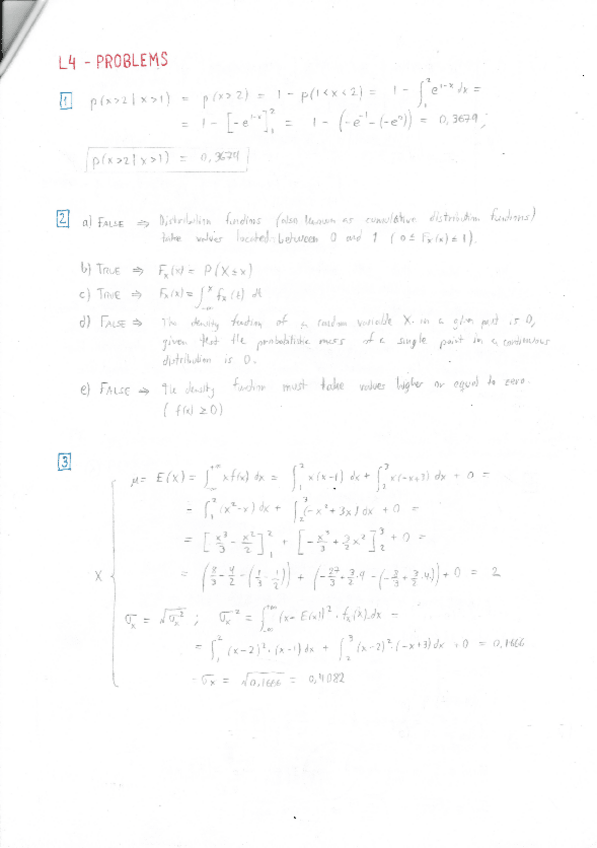 L4 - PROBLEMS
1 p(x>2|x>1) = p(x>2) = 1 - p(1<x<2) = 1 - ∫₁² e^(1-x) dx =
= 1 - [-e^(1-x)]₁² = 1 - (-e⁻¹ - (-e⁰)) = 0,3679;
p(x>2|x>1) = 0,3679
2 a) FALSE ⇒ Distribution functions (also known as cumulative distribution functions)
take values located between 0 and 1 (0 ≤ Fx(x) ≤ 1).
b) TRUE ⇒ Fx(x) = P(X≤x)
c) TRUE ⇒ Fx(x) = ∫₋∞ˣ fx(t) dt
d) FALSE ⇒ The density function of a random variable X in a given point is 0,
given that the probabilistic mass of a single point in a continuous
distribution is 0.
e) FALSE ⇒ The density function must take values higher or equal to zero.
(f(x) ≥ 0)
3
μ = E(X) = ∫₋∞⁺∞ x f(x) dx = ∫₁² x(x-1) dx + ∫₂³ x(-x+3) dx + 0 =
= ∫₁² (x²-x) dx + ∫₂³ (-x²+3x) dx + 0 =
= [x³/3 - x²/2]₁² + [-x³/3 + 3/2 x²]₂³ + 0 =
X = (8/3 - 4/2 - (1/3 - 1/2)) + (-27/3 + 3/2·9 - (-8/3 + 3/2·4)) + 0 = 2
σx = √σx² ; σx² = ∫₋∞⁺∞ (x - E(x))² · fx(x) dx =
= ∫₁² (x-2)²·(x-1) dx + ∫₂³ (x-2)²·(-x+3) dx + 0 = 0,1666
σx = √0,1666 = 0,4082